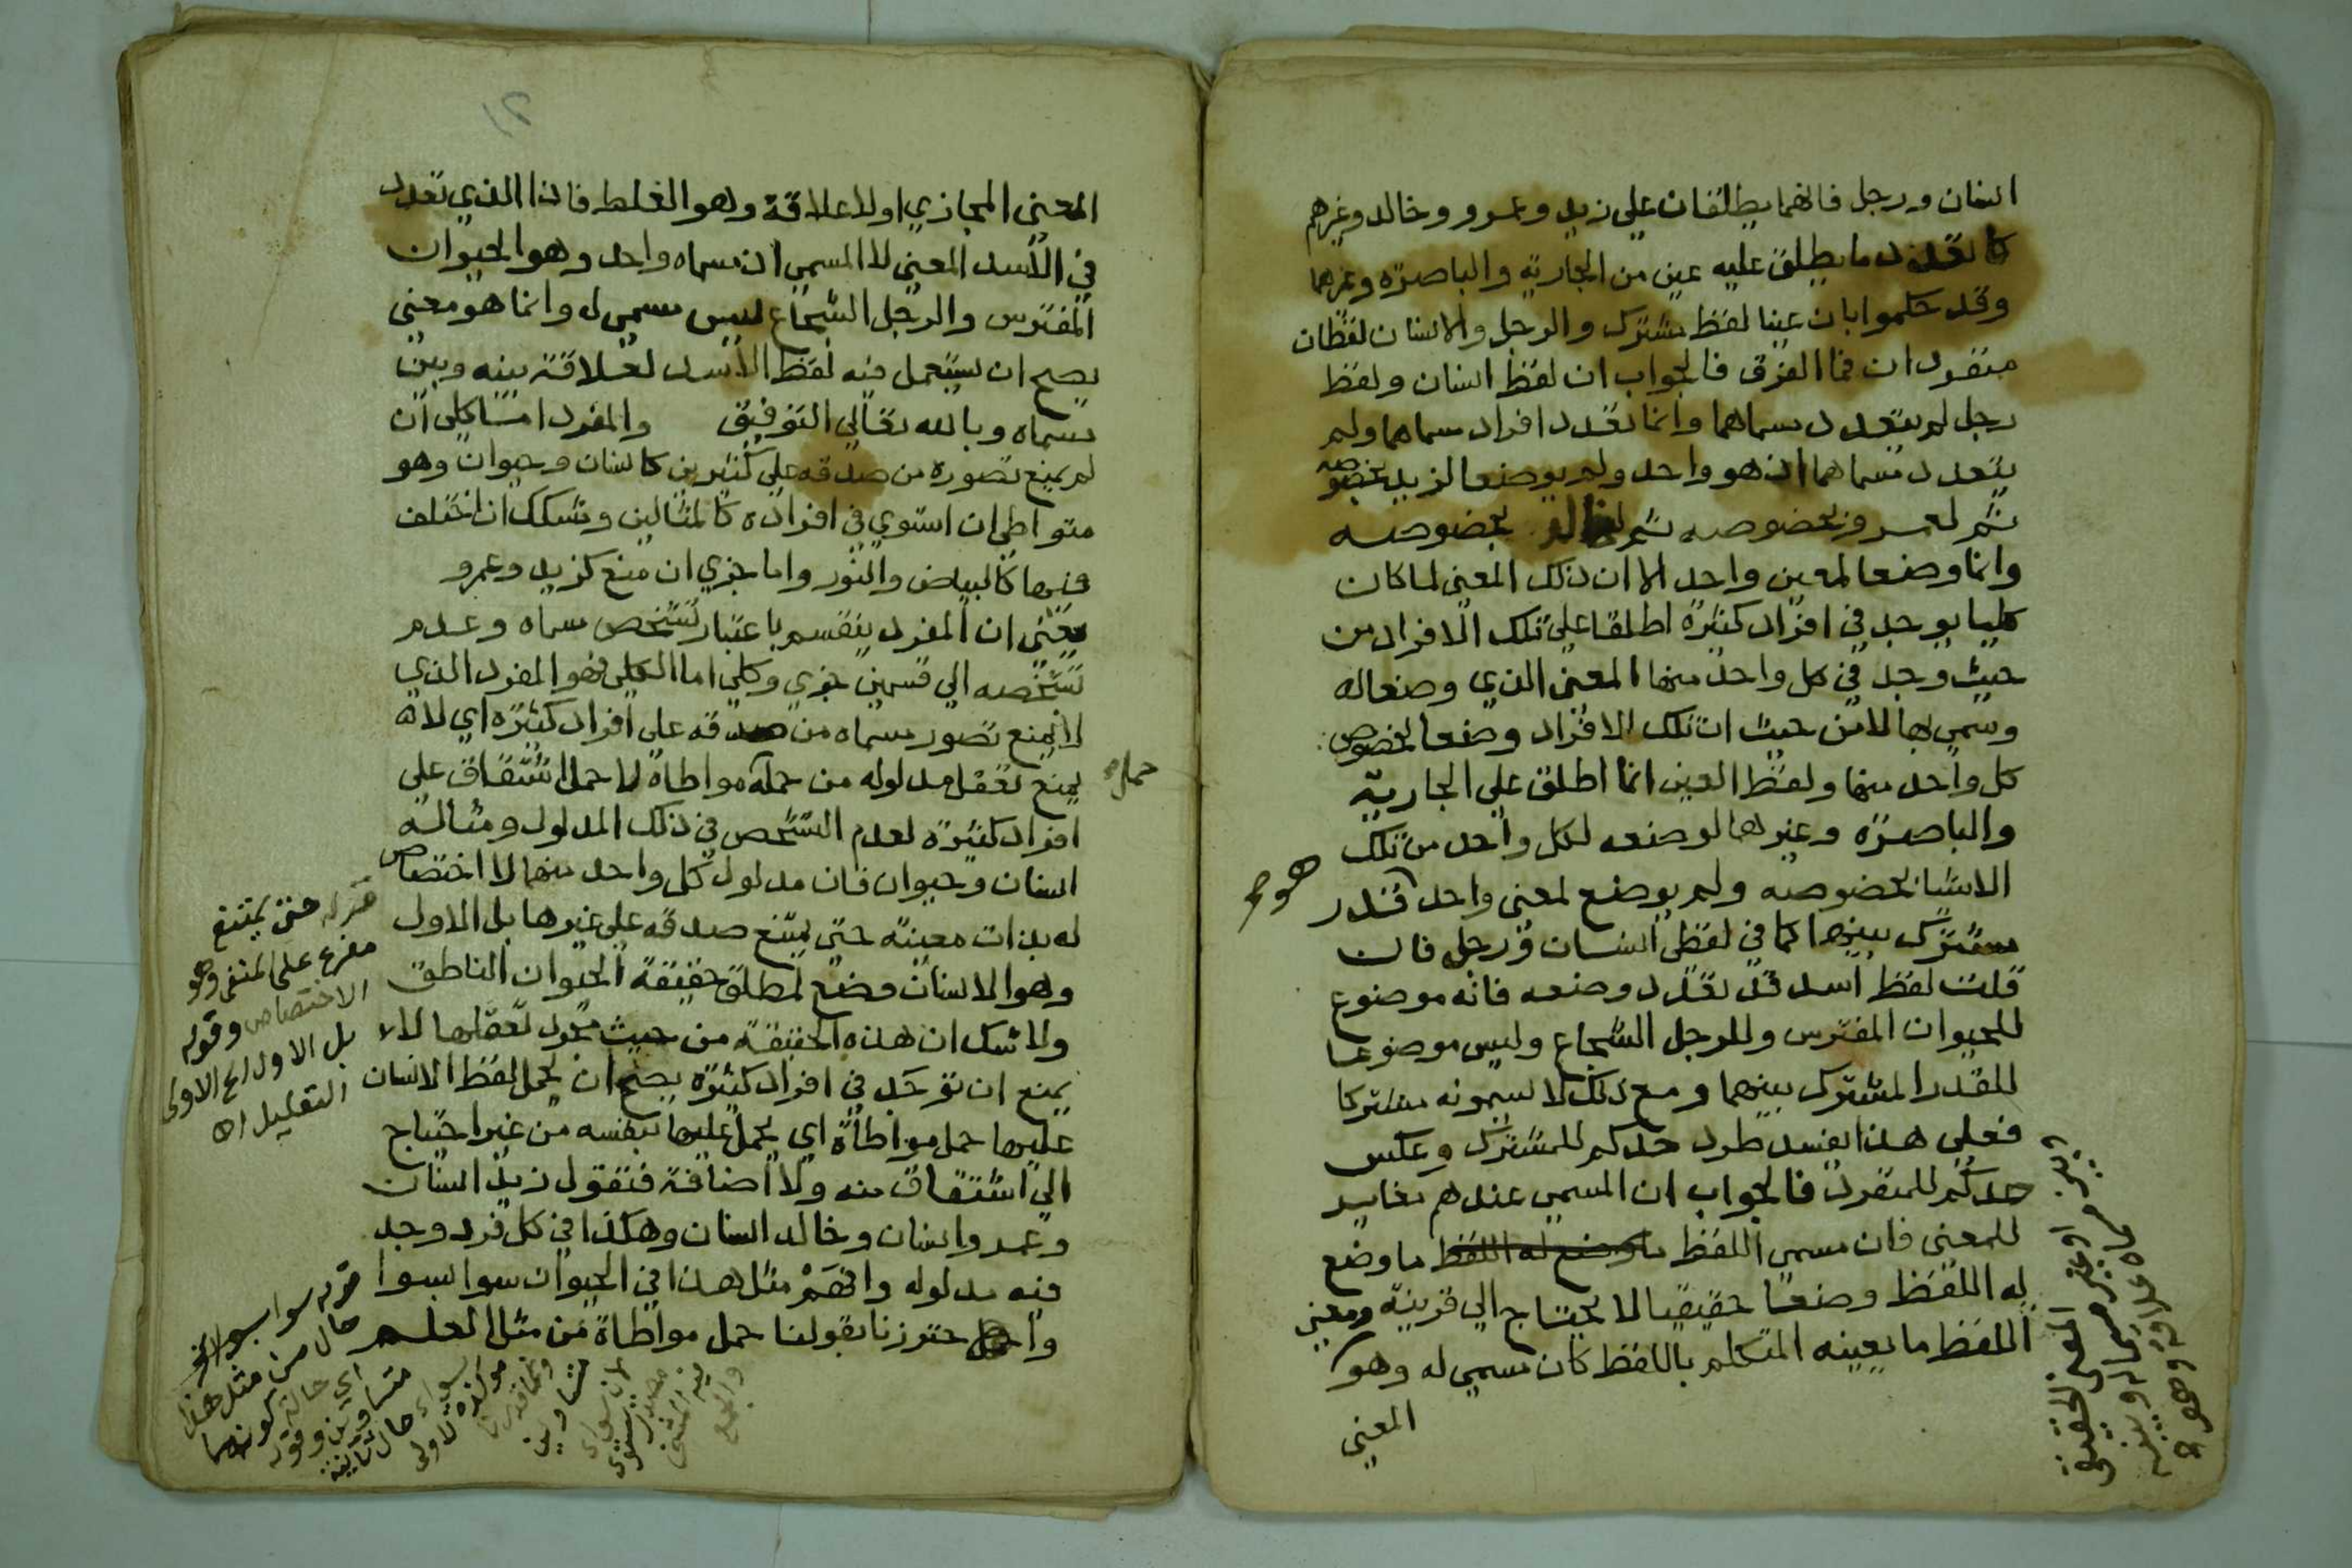 انسان ورجل فانهما يطلقان علي زيد وعمرو وخالد وغيرهم
كما تعدد ما يطلق عليه عين من الجارية والباصرة وغيرهما
وقد حكموا بان عينا لفظ مشترك والرجل والانسان لفظان
منفردان فما الفرق فالجواب ان لفظ انسان ولفظ
رجل لم يتعدد مسماهما وانما تعدد افراد مسماهما ولم
يتعدد مسماهما اذ هو واحد ولم يوضعا لزيد بخصوصه
ثم لعمرو بخصوصه ثم لخالد بخصوصه
وانما وضعا لمعين واحد الا ان ذلك المعني لما كان
كليا يوجد في افراد كثيرة اطلقا علي تلك الافراد من
حيث وجد في كل واحد منها المعني الذي وضعا له
وسمي بها لا من حيث ان تلك الافراد وضعا لخصوص
كل واحد منها ولفظ العين انما اطلق علي الجارية
والباصرة وغيرهما لوضعه لكل واحد من تلك
الاشيا بخصوصه ولم يوضع لمعني واحد قدر
هو صح
مشترك بينهما كما في لفظ انسان ورجل فان
قلت لفظ اسد قد تعدد وضعه فانه موضوع
للحيوان المفترس وللرجل الشجاع وليس موضوعا
للقدر المشترك بينهما ومع ذلك لا يسمونه مشتركا
فعلي هذا يفسد طرد حدكم للمشترك وعكس
حدكم للمنفرد فالجواب ان المسمي عندهم مغاير
للمعني فان مسمي اللفظ ما وضع له اللفظ ما وضع
له اللفظ وضعا حقيقيا لا يحتاج الي قرينة ومعني
اللفظ ما يعينه المتكلم باللفظ كان مسمي له وهو
المعني
المعني الحقيقي
المعني المجازي او لا علاقة وهو الغلط فاذا الذي تعدد
في الاسد المعني لا المسمي اذ مسماه واحد وهو الحيوان
المفترس والرجل الشجاع ليس مسمي له وانما هو معني
يصح ان يستعمل فيه لفظ الاسد لعلاقة بينه وبين
مسماه وبالله تعالي التوفيق والمفرد اما كلي ان
لم يمنع تصوره من صدقه علي كثيرين كانسان وحيوان وهو
متواطي ان استوي في افراده كالمثالين ومشكك ان اختلف
فيها كالبياض والنور واما جزي ان منع كزيد وعمرو
يعني ان المفرد ينقسم باعتبار تشخص مسماه وعدم
تشخصه الي قسمين جزي وكلي اما الكلي فهو المفرد الذي
لا يمنع تصور مسماه من صدقه علي افراد كثيرة اي لانه
يمنع تعقل مدلوله من حمله مواطاة لا حمل اشتقاق علي
حمل
افراد كثيرة لعدم التشخص في ذلك المدلول ومثاله
انسان وحيوان فان مدلول كل واحد منهما لا اختصاص
له بذات معينة حتي يمتنع صدقه علي غيرها بل الاول
وهو الانسان وضع لمطلق حقيقة الحيوان الناطق
ولا شك ان هذه الحقيقة من حيث مجرد تعقلها لا
يمنع ان توجد في افراد كثيرة يصح ان يحمل لفظ الانسان
عليها حمل مواطاة اي يحمل عليها بنفسه من غير احتياج
الي اشتقاق منه ولا اضافة فتقول زيد انسان
وعمرو انسان وخالد انسان وهكذا في كل فرد وجد
فيه مدلوله وافهم مثل هذا في الحيوان سوا بسوا
واحترزنا بقولنا حمل مواطاة من مثل العلم
قوله حتي يمتنع
مفرع علي المنفي وهو
الاختصاص وقوله
بل الاول الخ الاولي
التعليل اه
قوله سوا بسوا
حال من مثل هذا
اي حالة كونهما
متساويين وقوله